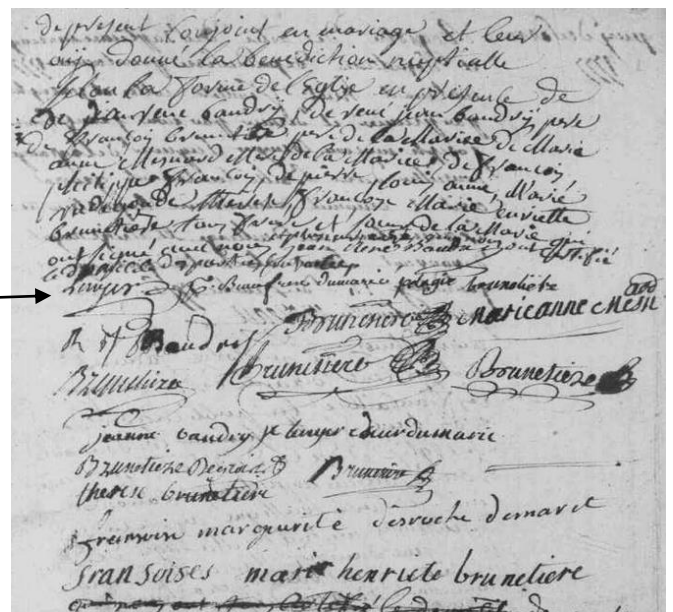 de present conjoint en mariage et leur
ais donné la benediction nuptialle
selon la forme de l'Eglise en presence de
de jeanne baudry de rené jean baudry pere
de françois brunetiere pere de la Mariée de Marie
anne Mesnard Mere de la Mariée de françois
philippe françois de pierre louis aimé, Marie
radegonde therese françoise Marie enriette
brunetiere tous frere et soeurs de la Marié
ont signé avec nous jean rené baudry ont certifié
le domicile des parties
Langer Beaufrere du marie pelagie brunetiere
Brunetiere Marieanne Mesnard
R jf Baudry
Brunetiere Brunetiere Brunetiere
jeanne baudry fe langer soeur du marié
Brunetiere Brunetiere
therese brunetiere
fransoise marguerite desroche demaret
fransoises marie henriete brunetiere